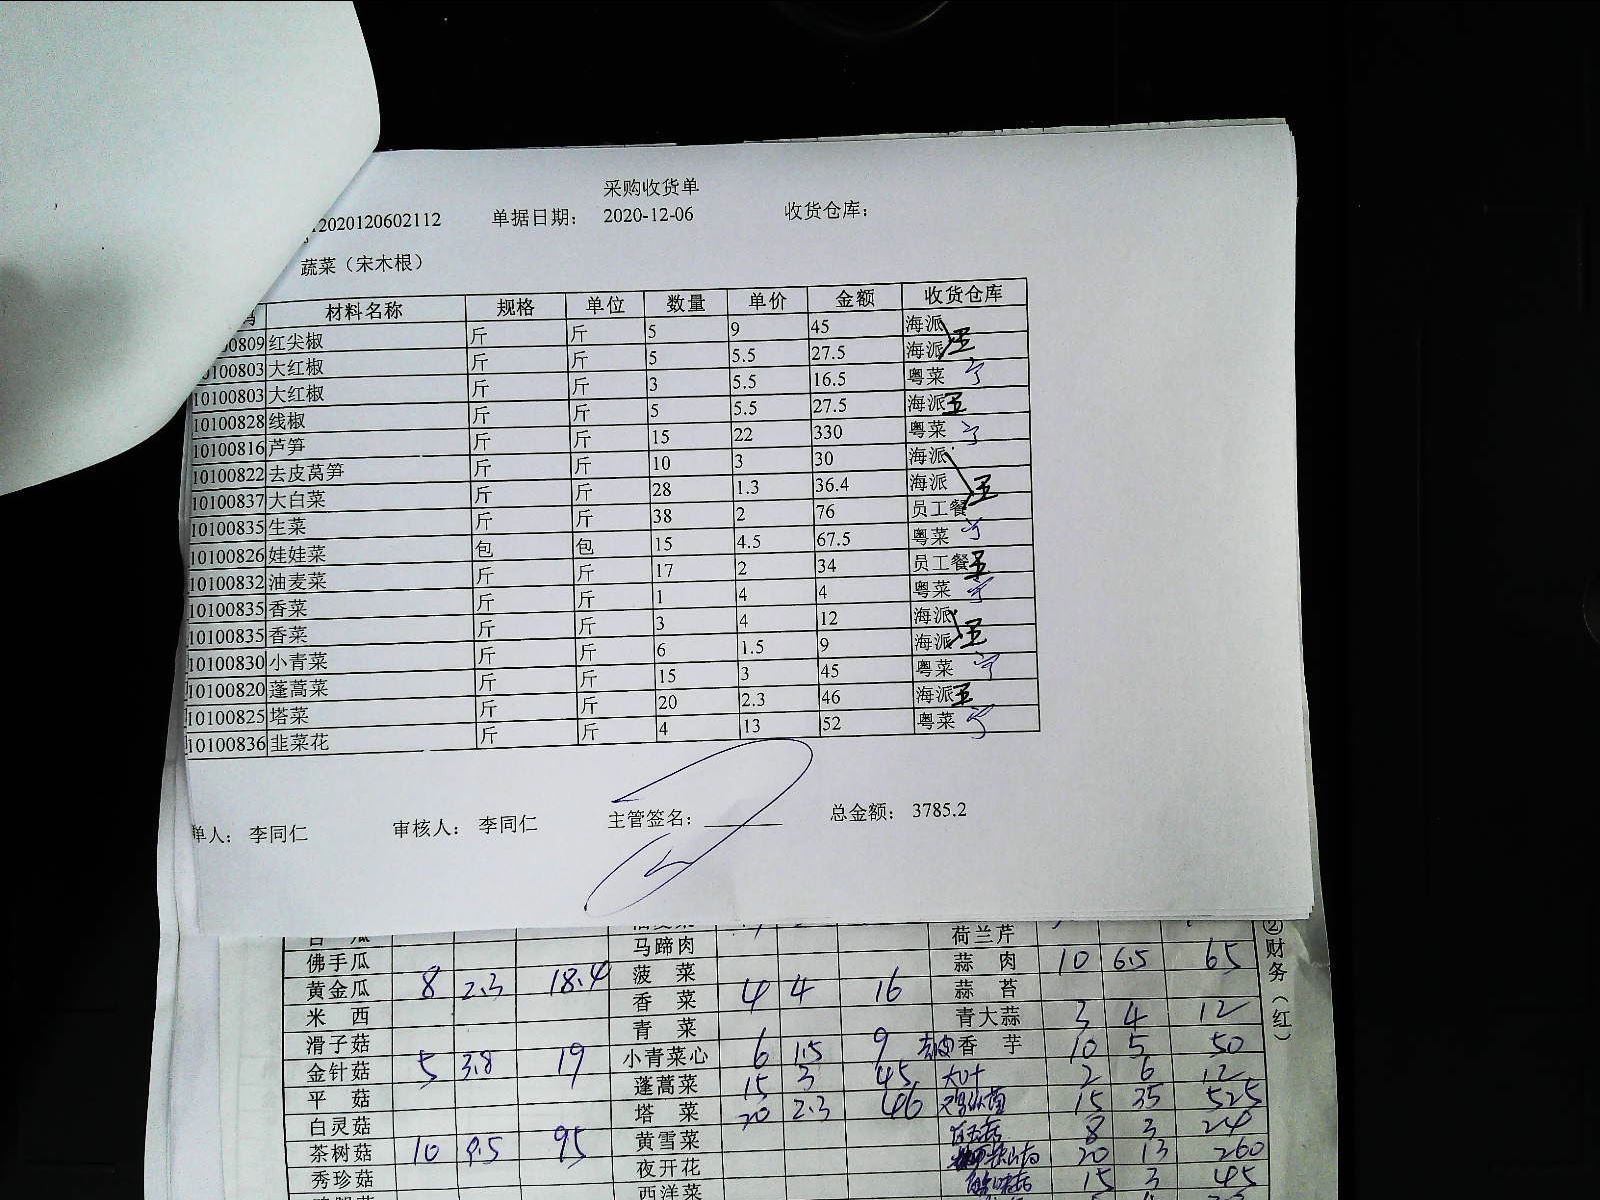 采购收货单
12020120602112 单据日期： 2020-12-06 收货仓库：
蔬菜（宋木根）
材料名称 规格 单位 数量 单价 金额 收货仓库
0809 红尖椒 斤 斤 5 9 45 海派
10100803 大红椒 斤 斤 5 5.5 27.5 海派
10100803 大红椒 斤 斤 3 5.5 16.5 粤菜
10100828 线椒 斤 斤 5 5.5 27.5 海派
10100816 芦笋 斤 斤 15 22 330 粤菜
10100822 去皮莴笋 斤 斤 10 3 30 海派
10100837 大白菜 斤 斤 28 1.3 36.4 海派
10100835 生菜 斤 斤 38 2 76 员工餐
10100826 娃娃菜 包 包 15 4.5 67.5 粤菜
10100832 油麦菜 斤 斤 17 2 34 员工餐
10100835 香菜 斤 斤 1 4 4 粤菜
10100835 香菜 斤 斤 3 4 12 海派
10100830 小青菜 斤 斤 6 1.5 9 海派
10100820 蓬蒿菜 斤 斤 15 3 45 粤菜
10100825 塔菜 斤 斤 20 2.3 46 海派
10100836 韭菜花 斤 斤 4 13 52 粤菜
单人： 李同仁 审核人： 李同仁 主管签名： 总金额： 3785.2
马蹄肉 荷兰芹
佛手瓜 菠菜 蒜肉 10 6.5 65
黄金瓜 8 2.3 18.4 香菜 4 4 16 蒜苔
米西 青菜 青大蒜 3 4 12
滑子菇 小青菜心 6 1.5 9 去皮香芋 10 5 50
金针菇 5 3.8 19 蓬蒿菜 15 3 45 2 6 12
平菇 塔菜 20 2.3 46 15 35 525
白灵菇 黄雪菜 8 3 24
茶树菇 10 9.5 95 夜开花 20 13 260
秀珍菇 西洋菜 15 3 45
②财务（红）